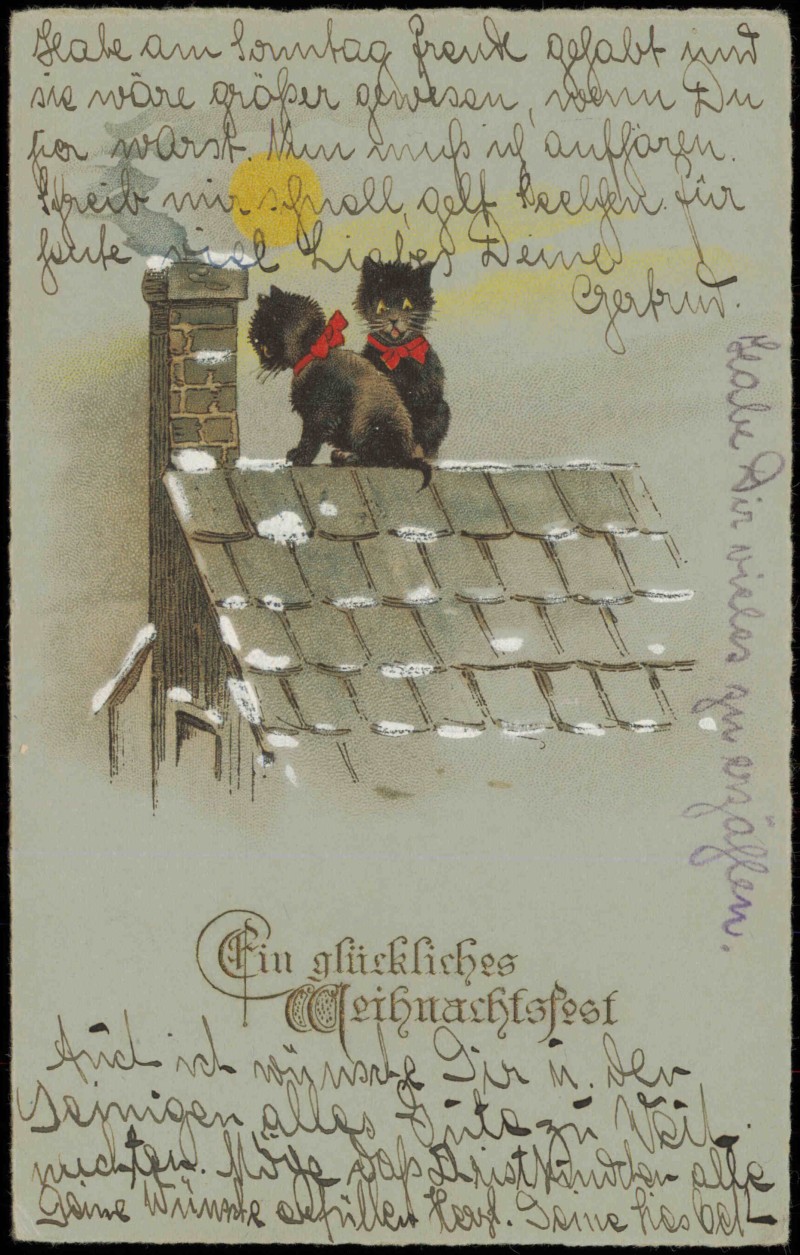 Habe am Sonntag Freude gehabt und
sie wäre größer gewesen, wenn Du
hier warst. Nun muß ich aufhören.
Schreib mir schnell, gelt. Für
heute viel Liebes Deine
Gertrud.
Habe Dir vieles zu erzählen.
Ein glückliches
Weihnachtsfest
Auch ich wünsche Dir u. den
Deinigen alles Gute zu Weih-
nachten. Möge das Christkindchen alle
Deine Wünsche erfüllen Herzl. Deine